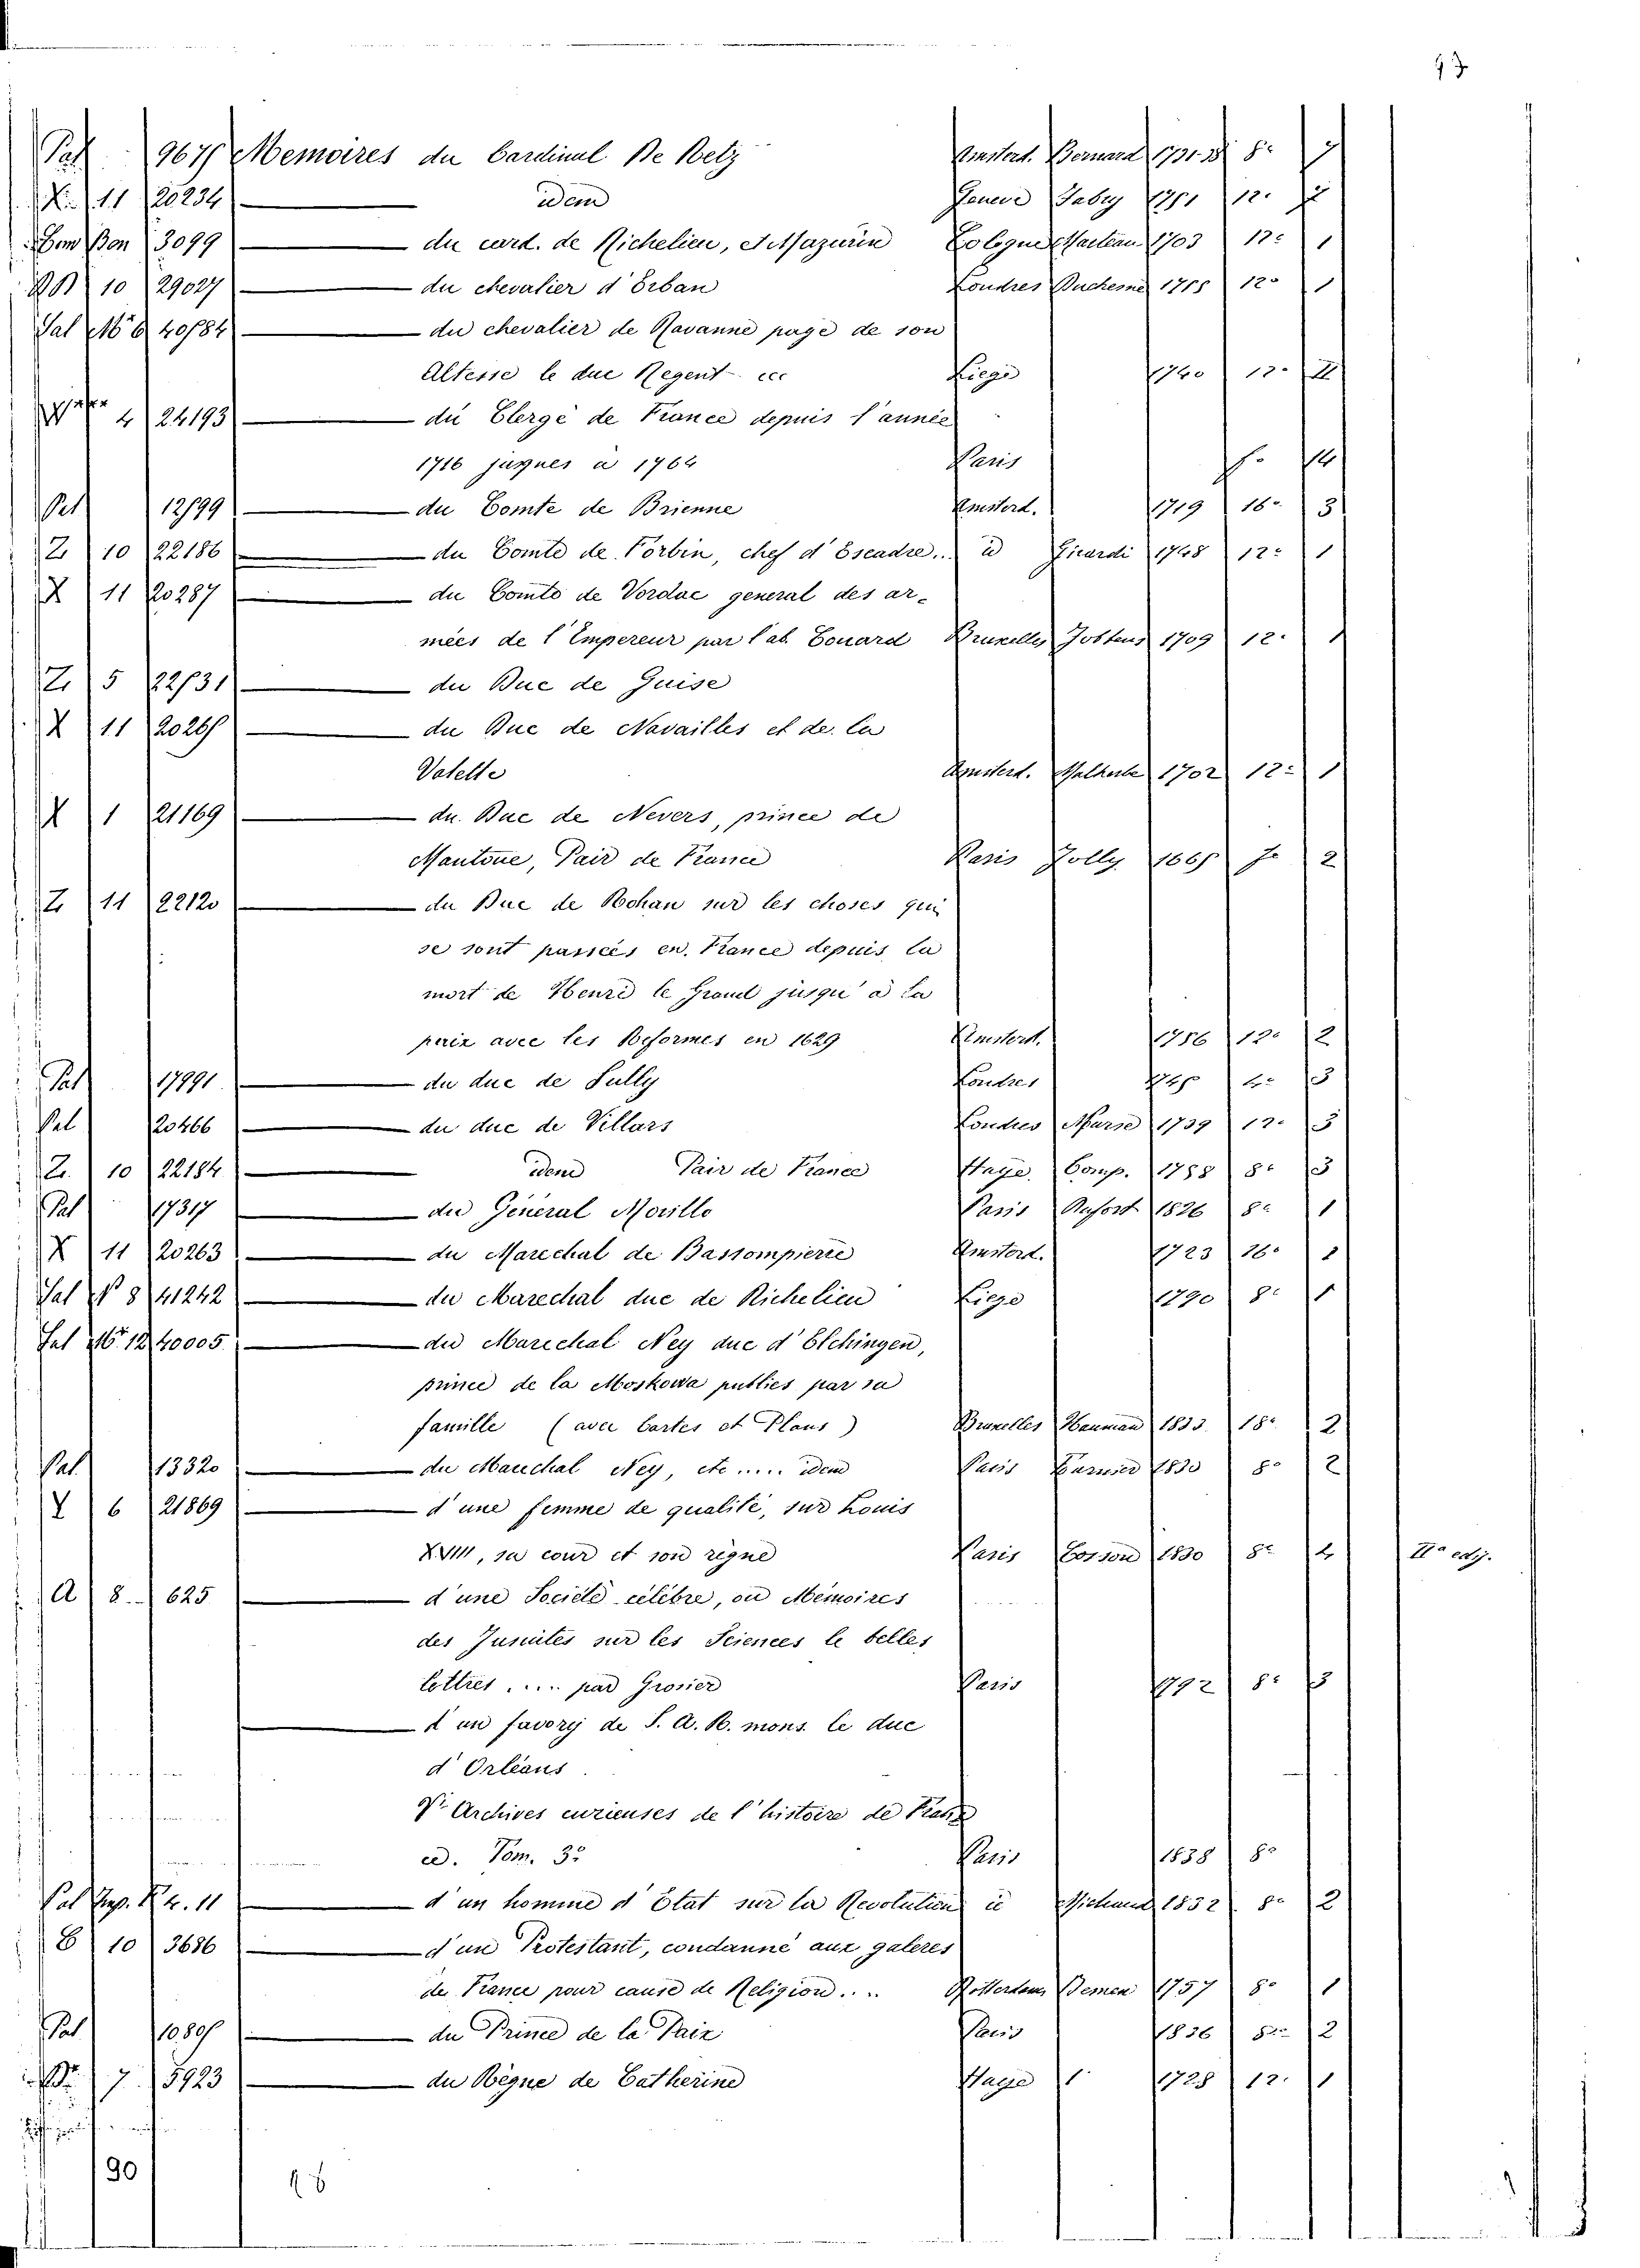 93
Pal 967 Memoires du Cardinal De Retz Amsterd. Bernard 1731 8º
X 11 20234 idem Geneve Fabry 1751 12º
3099 du card. de Richelieu, et Mazarin Cologne Marteau 1703 12º 1
10 29027 du chevalier d'Erban Londres Duchesne 1755 12º 1
Sal Nº 6 40584 du chevalier de Ravanne page de son
Altesse le duc Regent Liege 1740 12º 2
4 24193 du Clergé de France depuis l'année
1716 jusques à 1764 Paris fº 14
Pal 12599 du Comte de Brienne Amsterd. 1719 16º 3
Z 10 22186 du Comte de Forbin, chef d'Escadre... id Girardi 1748 12º 1
X 11 20287 du Comte de Vordac general des ar-
mées de l'Empereur par l'ab. Couard Bruxelles Jostens 1709 12º 1
Z 5 22531 du Duc de Guise
X 11 20265 du Duc de Navailles et de la
Valette Amsterd. Malherbe 1702 12º 1
X 1 21169 du Duc de Nevers, prince de
Mantoue, Pair de France Paris Jolly 1665 fº 2
Z 11 22120 du Duc de Rohan sur les choses qui
se sont passées en France depuis la
mort de Henri le Grand jusqu'à la
paix avec les Reformes en 1629 Amsterd. 1756 12º 2
Pal 17991 du duc de Sully Londres 1745 4º 3
Pal 20466 du duc de Villars Londres Nurse 1739 12º 3
Z. 10 22184 idem Pair de France Haye Comp. 1758 8º 3
Pal 17317 du Général Morillo Paris Dufort 1826 8º 1
X 11 20263 du Marechal de Bassompierre Amsterd. 1723 16º 2
Sal Nº 8 41242 du Marechal duc de Richelieu Liege 1790 8º 1
Sal Nº 12 40005 du Marechal Ney duc d'Elchingen,
prince de la Moskowa publies par sa
famille (avec Cartes et Plans) Bruxelles Hauman 1833 18º 2
Pal 13320 du Marechal Ney, etc..... idem Paris Furnier 1833 8º 2
Y 6 21869 d'une femme de qualité, sur Louis
XVIII, sa cour et son règne Paris Cosson 1830 8º 4 IIª ediz.
A 8. 625 d'une Societé célèbre, ou Mémoires
des Jesuites sur les Sciences le belles
lettres .... par Grosier Paris 1792 8º 3
d'un favory de S. A. R. mons. le duc
d'Orléans
Vi Archives curieuses de l'histoire de France
ed. Tom. 3º Paris 1838 8º
Pal Imp. K 4. 11 d'un homme d'Etat sur la Revolution id Michaud 1832 8º 2
B 10 3686 d'un Protestant, condanné aux galeres
de France pour cause de Religion.... Rotterdam Bemen 1757 8º 1
Pal 10805 du Prince de la Paix Paris 1836 8º 2
7 5923 du Règne de Catherine Haye 1728 12º 1
90